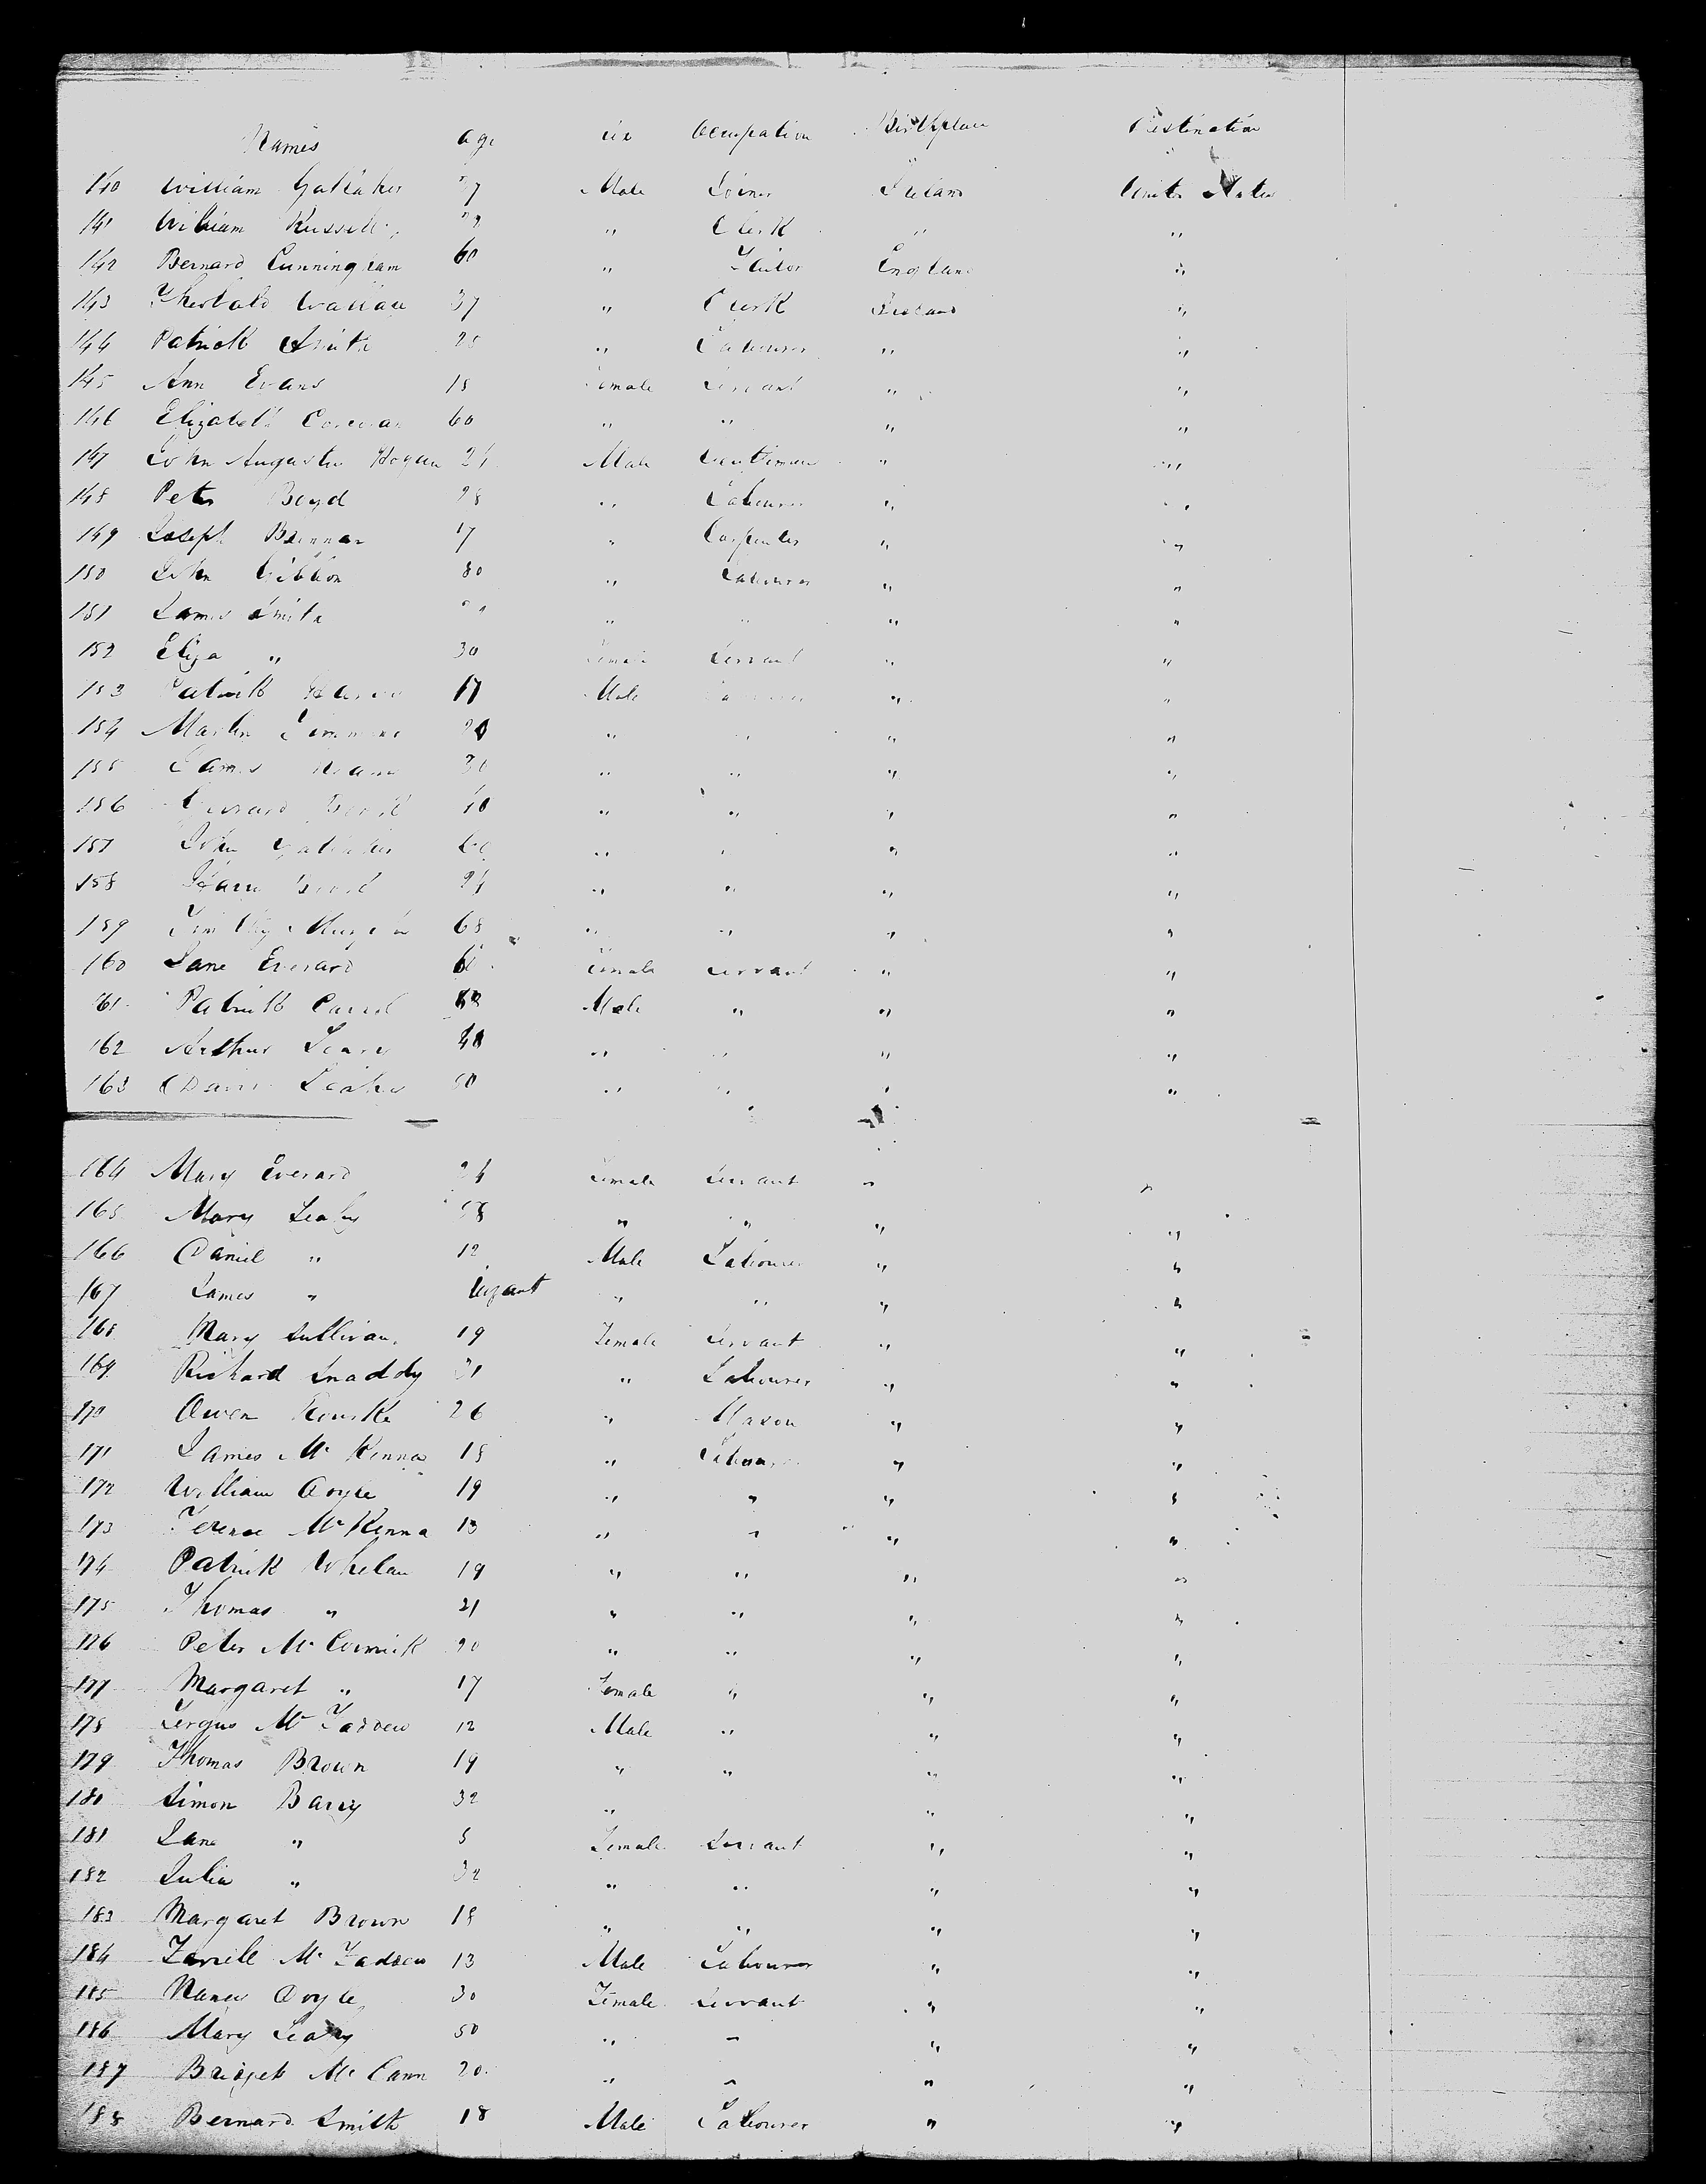 Names Age Sex Occupation Birthplace Destination
140 William Gallaher Male Joiner Ireland United States
141 William Russell " Clerk " "
142 Bernard Cunningham 60 " England "
143 Theobald Wallace 37 " Clerk Ireland "
144 Patrick Smith 25 " Labourer " "
145 Ann Evans 18 Female Servant " "
146 Elizabeth Corcoran 60 " " " "
147 John Augustus Hogan 24 Male Gentleman " "
148 Peter Boyd 28 " Labourer " "
149 Joseph Brennan 17 " Carpenter " "
150 John Gibbon 30 " Labourer " "
151 James Smith " " " "
152 Eliza " 30 Female Servant " "
153 Patrick 17 Male Labourer " "
154 Martin Timmins 20 " " " "
155 James 30 " " " "
156 " " " "
157 John Gallaher 60 " " " "
158 24 " " " "
159 Timothy 68 " " " "
160 Jane Everard Female Servant " "
161 Patrick Carrol Male " " "
162 Arthur Leary " " " "
163 " " " "
164 Mary Everard 24 Female Servant " "
165 Mary Leahy " " " "
166 Daniel " 12 Male Labourer " "
167 James " Infant " " " "
168 Mary Sullivan 19 Female Servant " "
169 Richard Snaddy 31 " Labourer " "
170 Owen Rourke 26 " Mason " "
171 James McKenna 18 " Labourer " "
172 William Doyle 19 " " " "
173 Terence McKenna 13 " " " "
174 Patrick Whelan 19 " " " "
175 Thomas " 21 " " " "
176 Peter McCormick 20 " " " "
177 Margaret " 17 Female " " "
178 Fergus McFadden 12 Male " " "
179 Thomas Brown 19 " " " "
180 Simon Barry 32 " " "
181 Jane " 5 Female Servant " "
182 Julia " 32 " " " "
183 Margaret Brown 18 " " " "
184 Farrell McFadden 13 Male Labourer " "
185 Nancy Doyle 30 Female Servant " "
186 Mary Leahy 50 " " " "
187 Bridget McCann 20 " " " "
188 Bernard Smith 18 Male Labourer " "